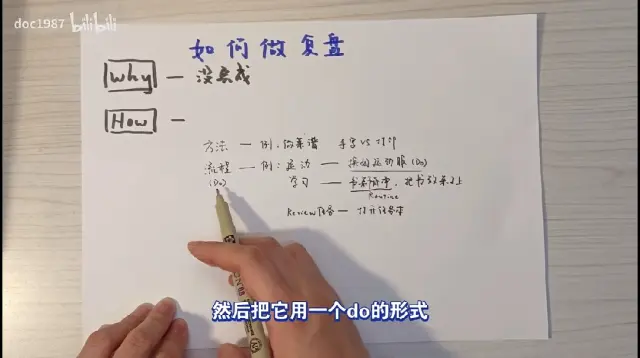 doc1987 bilibili
如何做复盘
Why — 没完成
How —
方法 — 例: 你菜谱 手写 vs 打印
流程 — 例: 运动 — 换运动服 (Do)
(Do) 学习 — 书架清单, 把书放桌上
Routine
Review任务 — 打开任务本
然后把它用一个do的形式